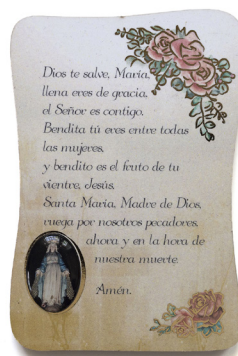 Dios te salve, María,
llena eres de gracia,
el Señor es contigo.
Bendita tú eres entre todas
las mujeres,
y bendito es el fruto de tu
vientre, Jesús.
Santa María, Madre de Dios,
ruega por nosotros pecadores,
ahora y en la hora de
nuestra muerte.
Amén.